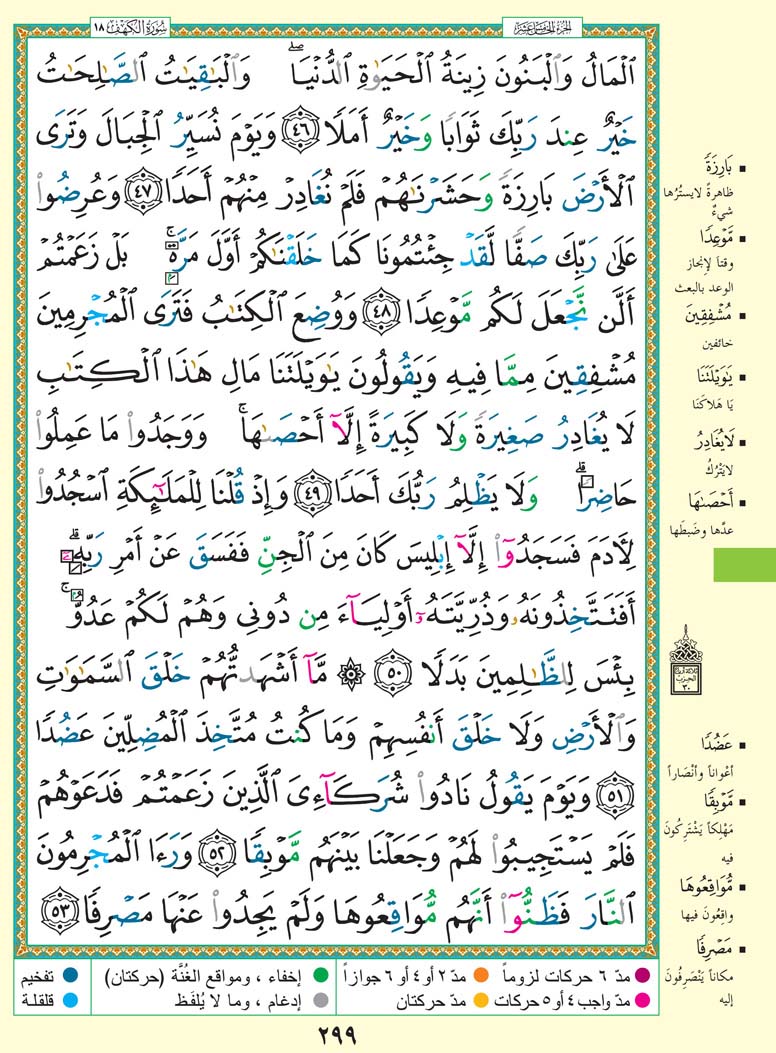 الجزء الخامس عشر
سورة الكهف ١٨
ٱلْمَالُ وَٱلْبَنُونَ زِينَةُ ٱلْحَيَوٰةِ ٱلدُّنْيَاۖ وَٱلْبَٰقِيَٰتُ ٱلصَّٰلِحَٰتُ
خَيْرٌ عِندَ رَبِّكَ ثَوَابًا وَخَيْرٌ أَمَلًا ٤٦ وَيَوْمَ نُسَيِّرُ ٱلْجِبَالَ وَتَرَى
ٱلْأَرْضَ بَارِزَةً وَحَشَرْنَٰهُمْ فَلَمْ نُغَادِرْ مِنْهُمْ أَحَدًا ٤٧ وَعُرِضُوا۟
عَلَىٰ رَبِّكَ صَفًّا لَّقَدْ جِئْتُمُونَا كَمَا خَلَقْنَٰكُمْ أَوَّلَ مَرَّةٍۭۚ بَلْ زَعَمْتُمْ
أَلَّن نَّجْعَلَ لَكُم مَّوْعِدًا ٤٨ وَوُضِعَ ٱلْكِتَٰبُ فَتَرَى ٱلْمُجْرِمِينَ
مُشْفِقِينَ مِمَّا فِيهِ وَيَقُولُونَ يَٰوَيْلَتَنَا مَالِ هَٰذَا ٱلْكِتَٰبِ
لَا يُغَادِرُ صَغِيرَةً وَلَا كَبِيرَةً إِلَّآ أَحْصَىٰهَاۚ وَوَجَدُوا۟ مَا عَمِلُوا۟
حَاضِرًاۗ وَلَا يَظْلِمُ رَبُّكَ أَحَدًا ٤٩ وَإِذْ قُلْنَا لِلْمَلَٰٓئِكَةِ ٱسْجُدُوا۟
لِءَادَمَ فَسَجَدُوٓا۟ إِلَّآ إِبْلِيسَ كَانَ مِنَ ٱلْجِنِّ فَفَسَقَ عَنْ أَمْرِ رَبِّهِۦٓۗ
أَفَتَتَّخِذُونَهُۥ وَذُرِّيَّتَهُۥٓ أَوْلِيَآءَ مِن دُونِى وَهُمْ لَكُمْ عَدُوٌّۢۚ
بِئْسَ لِلظَّٰلِمِينَ بَدَلًا ٥٠ ۞ مَّآ أَشْهَدتُّهُمْ خَلْقَ ٱلسَّمَٰوَٰتِ
وَٱلْأَرْضِ وَلَا خَلْقَ أَنفُسِهِمْ وَمَا كُنتُ مُتَّخِذَ ٱلْمُضِلِّينَ عَضُدًا
٥١ وَيَوْمَ يَقُولُ نَادُوا۟ شُرَكَآءِىَ ٱلَّذِينَ زَعَمْتُمْ فَدَعَوْهُمْ
فَلَمْ يَسْتَجِيبُوا۟ لَهُمْ وَجَعَلْنَا بَيْنَهُم مَّوْبِقًا ٥٢ وَرَءَا ٱلْمُجْرِمُونَ
ٱلنَّارَ فَظَنُّوٓا۟ أَنَّهُم مُّوَاقِعُوهَا وَلَمْ يَجِدُوا۟ عَنْهَا مَصْرِفًا ٥٣
▪ بَارِزَةً
ظاهرةً لايستُرُها
شيءٌ
▪ مَّوْعِدًا
وقتاً لإنجاز
الوعد بالبعث
▪ مُشْفِقِينَ
خائفين
▪ يَٰوَيْلَتَنَا
يَا هَلاكَنَا
▪ لَايُغَادِرُ
لايَتْرُكُ
▪ أَحْصَىٰهَا
عدَّها وضبطَها
ثلاثة أرباع
الحزب
٣٠
▪ عَضُدًا
أعْوَاناً وأنْصَاراً
▪ مَّوْبِقًا
مَهْلِكاً يَشْتَرِكُونَ
فيه
▪ مُّوَاقِعُوهَا
واقِعُونَ فيها
▪ مَصْرِفًا
مكاناً يَنْصَرِفُونَ
إليه
مدّ ٦ حركات لزوماً
مدّ ٢ أو ٤ أو ٦ جوازاً
إخفاء ، ومواقع الغُنَّة (حركتان)
تفخيم
مدّ واجب ٤ أو ٥ حركات
مدّ حركتان
إدغام ، وما لا يُلفَظ
قلقلة
٢٩٩